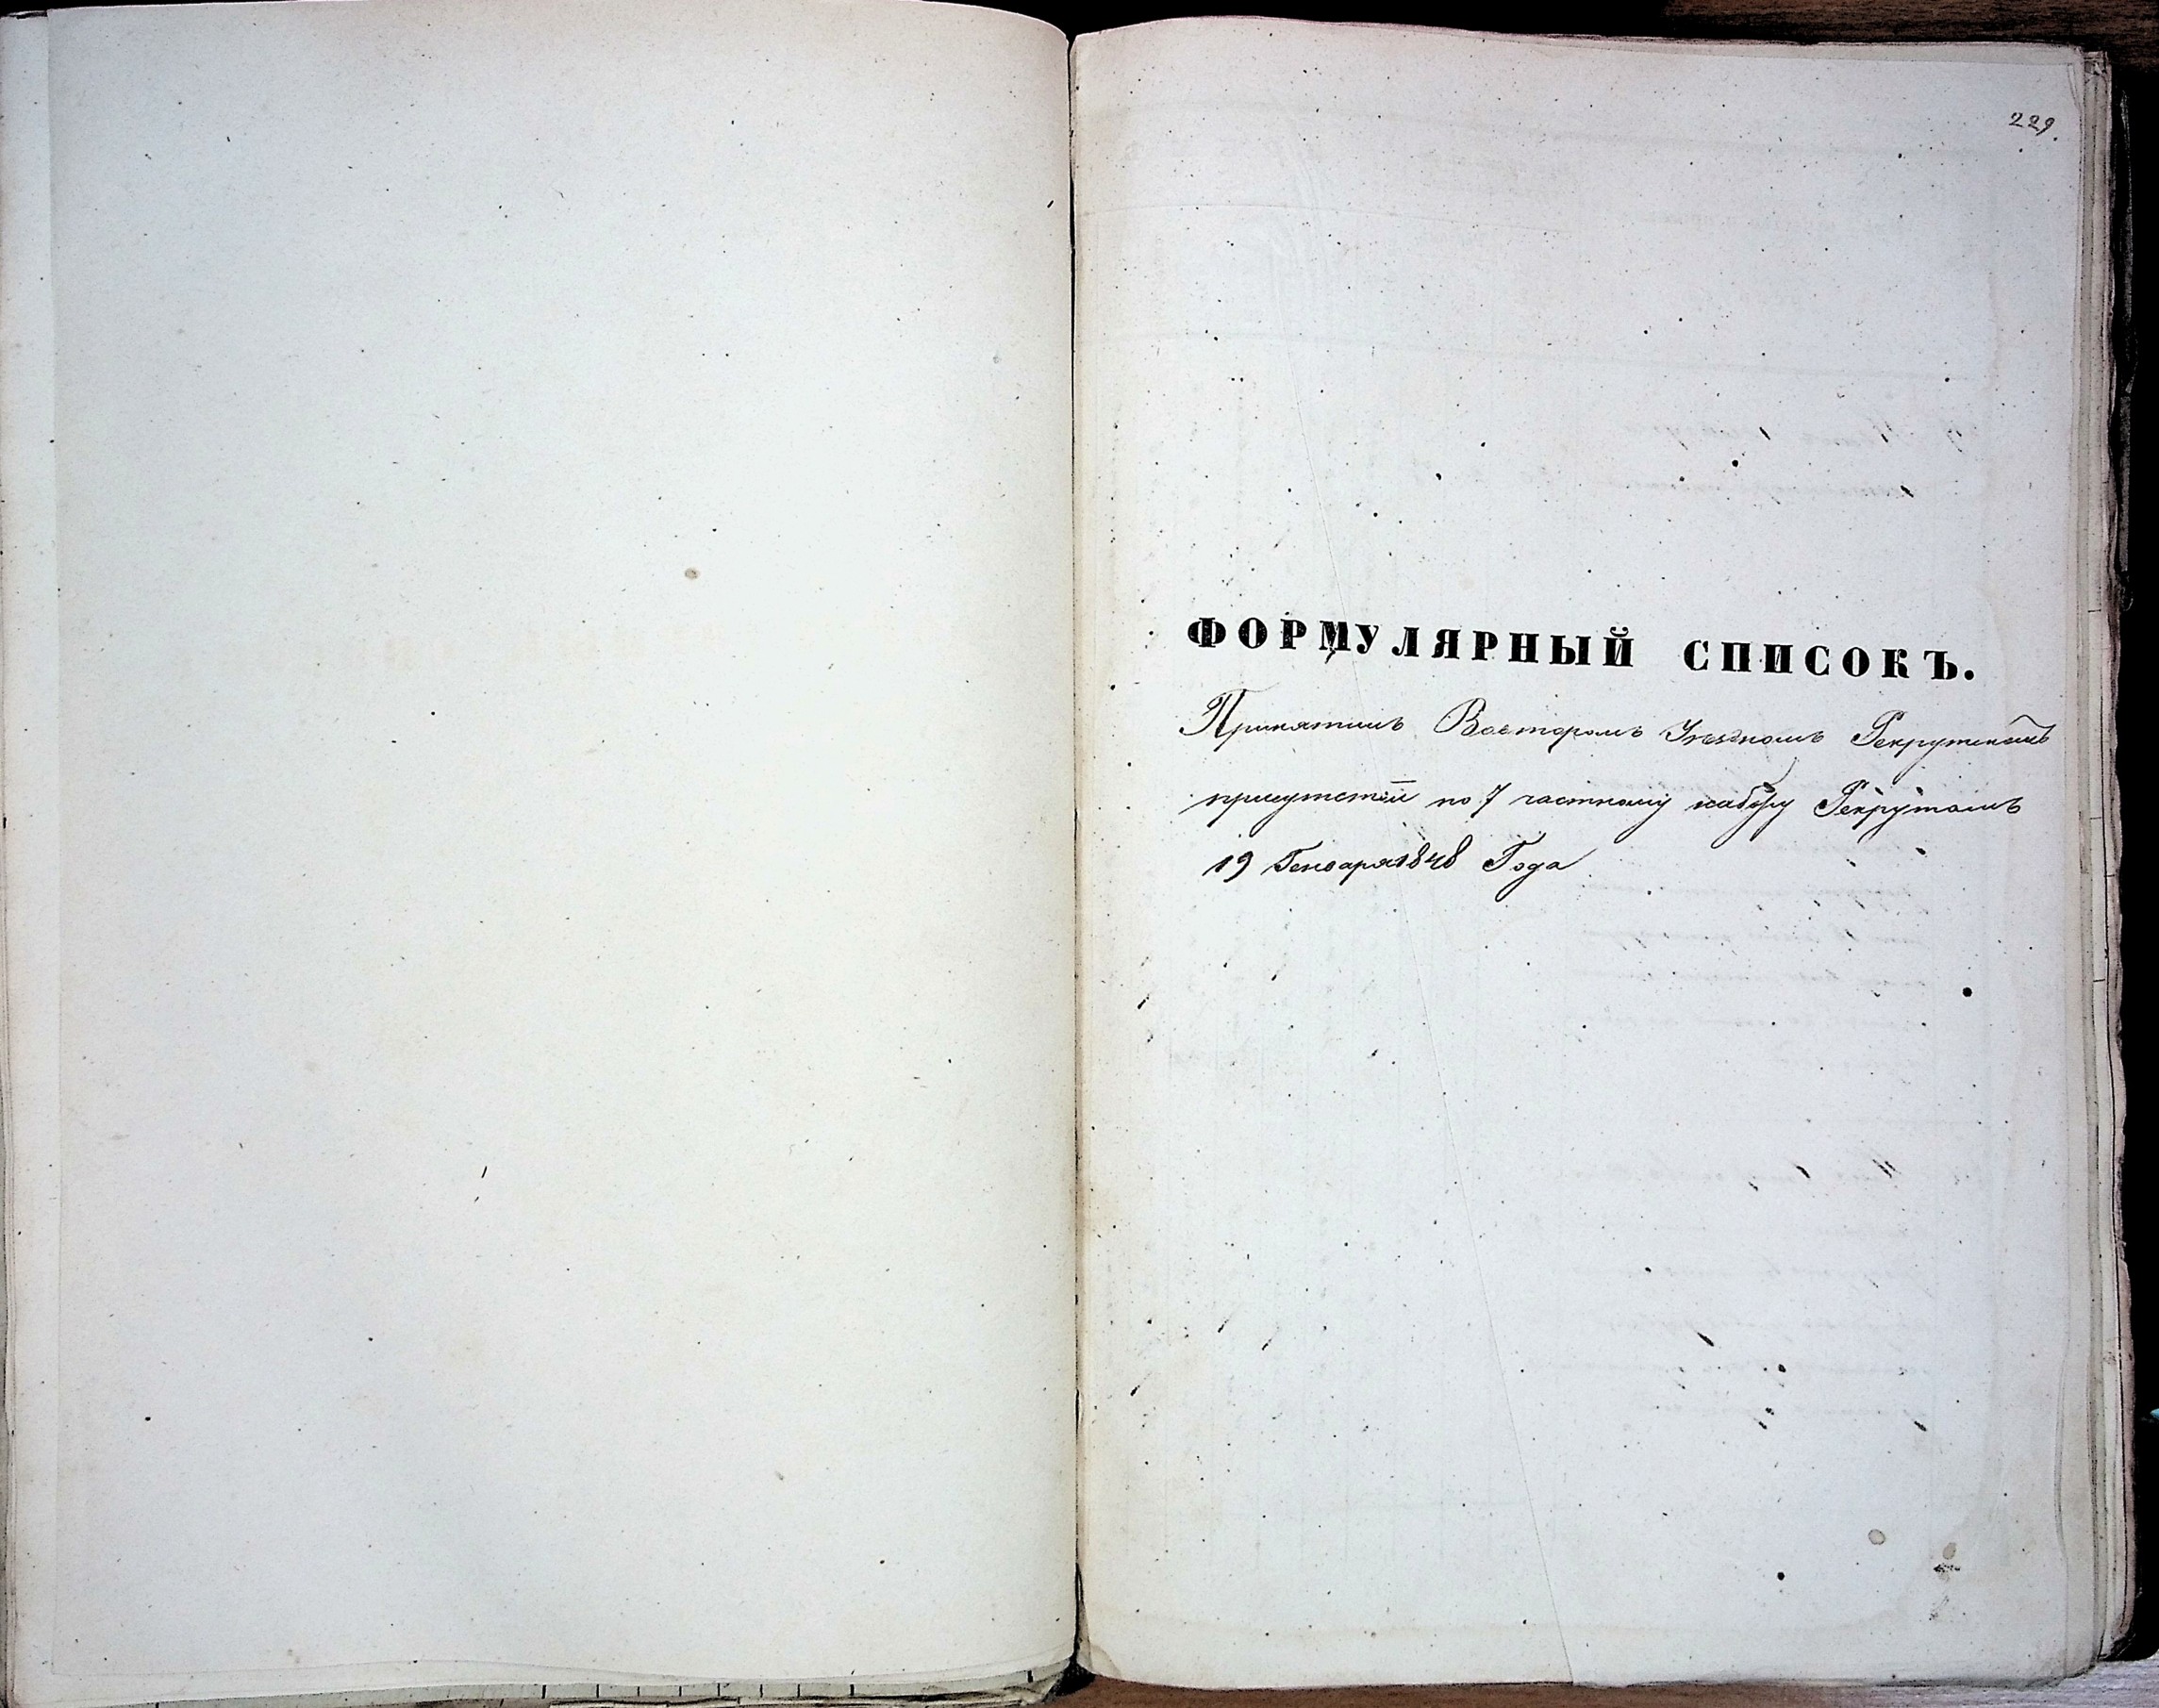 229.
ФОРМУЛЯРНЫЙ СПИСОКЪ.
Принятымъ Вовторомъ Уѣздномъ Рекрутскомъ
присутствіи по 7 частному набору Рекрутамъ
19 Генваря 1848 Года